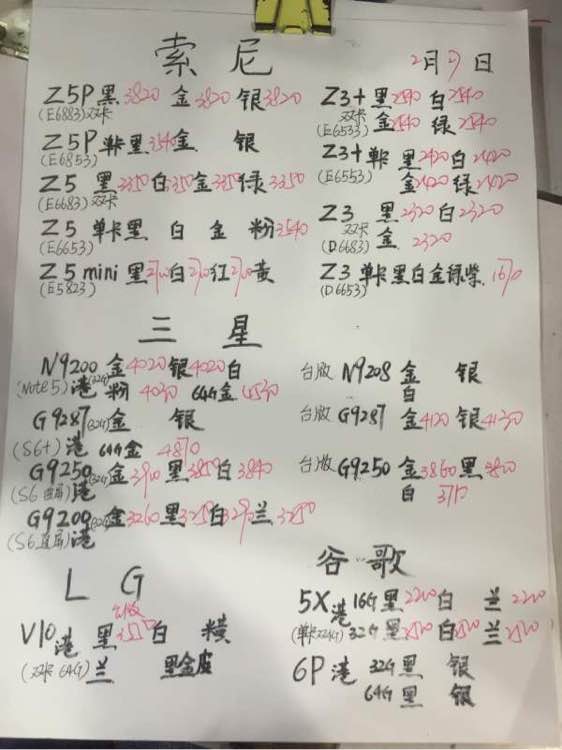 索尼
2月27日
Z5P黑3820 金3820 银3820
(E6883)双卡
Z5P单卡黑3540金 银
(E6853)
Z5 黑3350白3350金3350绿3350
(E6683)双卡
Z5 单卡黑 白 金 粉3540
(E6653)
Z5 mini黑2710白2710红2700黄
(E5823)
Z3+黑2540白2540
双卡
(E6533) 金2540 绿2540
Z3+单卡 黑2420白2420
(E6553) 金2420绿2420
Z3 黑2320白2320
双卡
(D6683) 金 2320
Z3单卡黑白金绿柴 1670
(D6653)
三星
N9200(32G)金4020银4020白
(Note5)港 粉 4030 64G金4530
G9287(32G)金 银
(S6+)港 64G金 4870
G9250(32G)金3910黑3850白3840
(S6曲屏)港
G9200(32G)金3260黑3250白3290兰3250
(S6直屏)港
台版 N9208 金 银
白
台版 G9287 金4120 银4130
台版 G9250 金3860黑3800
白 3710
LG
V10港 黑 白 横
(双卡64G)兰 黑金皮
谷歌
5X港 16G黑2200白 兰2200
(单卡2+24G)32G黑2500白2500兰2500
6P港 32G黑 银
64G黑 银